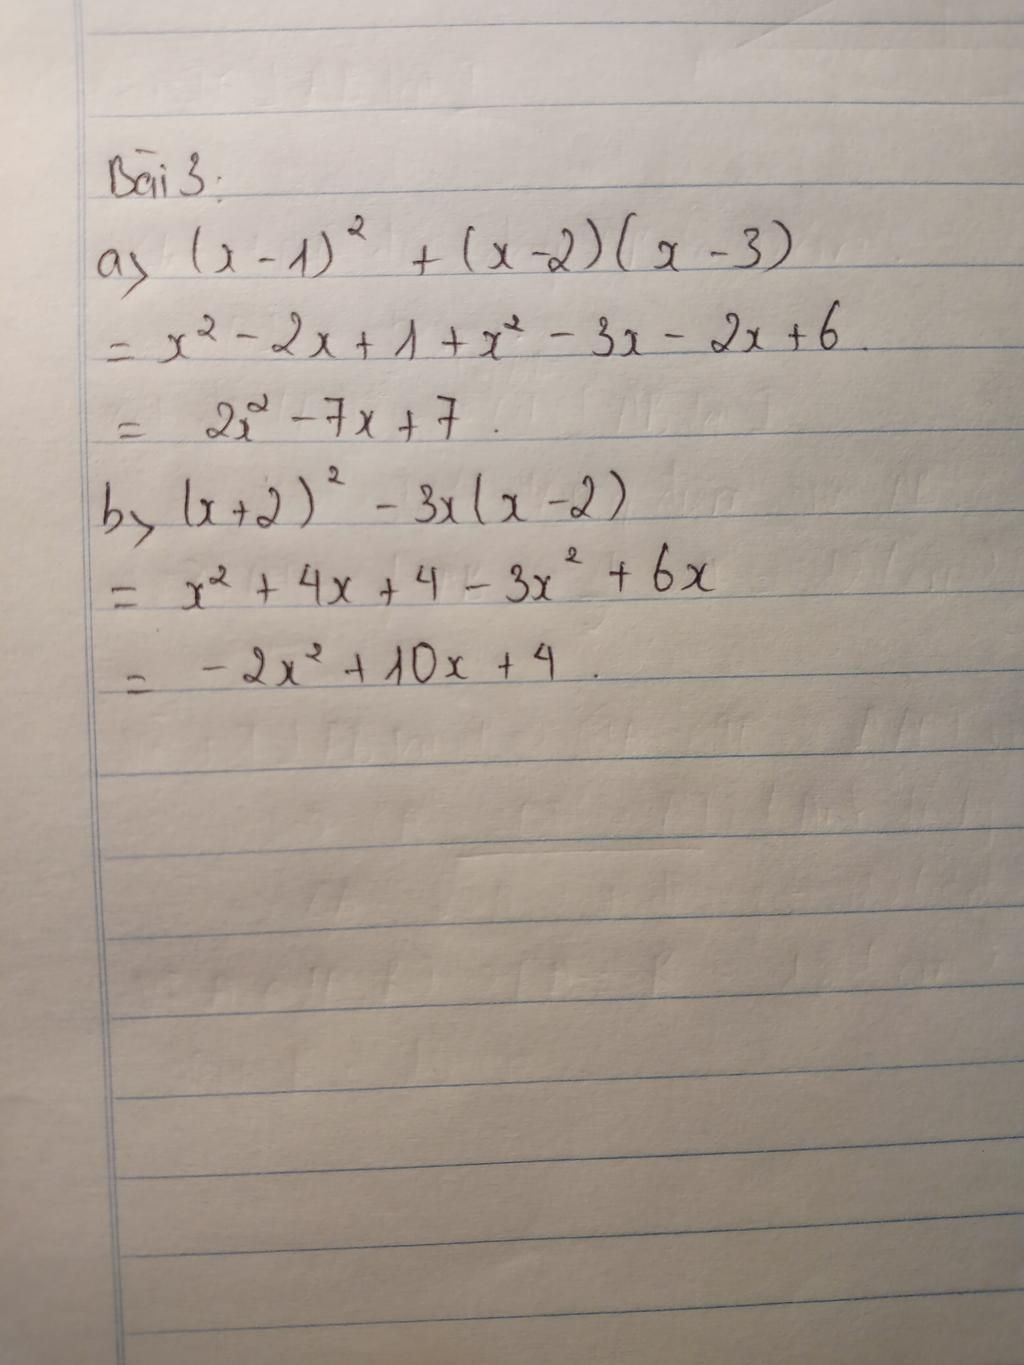 Bài 3:
a) (x - 1)² + (x - 2)(x - 3)
= x² - 2x + 1 + x² - 3x - 2x + 6.
= 2x² - 7x + 7.
b) (x + 2)² - 3x(x - 2)
= x² + 4x + 4 - 3x² + 6x
= - 2x² + 10x + 4.